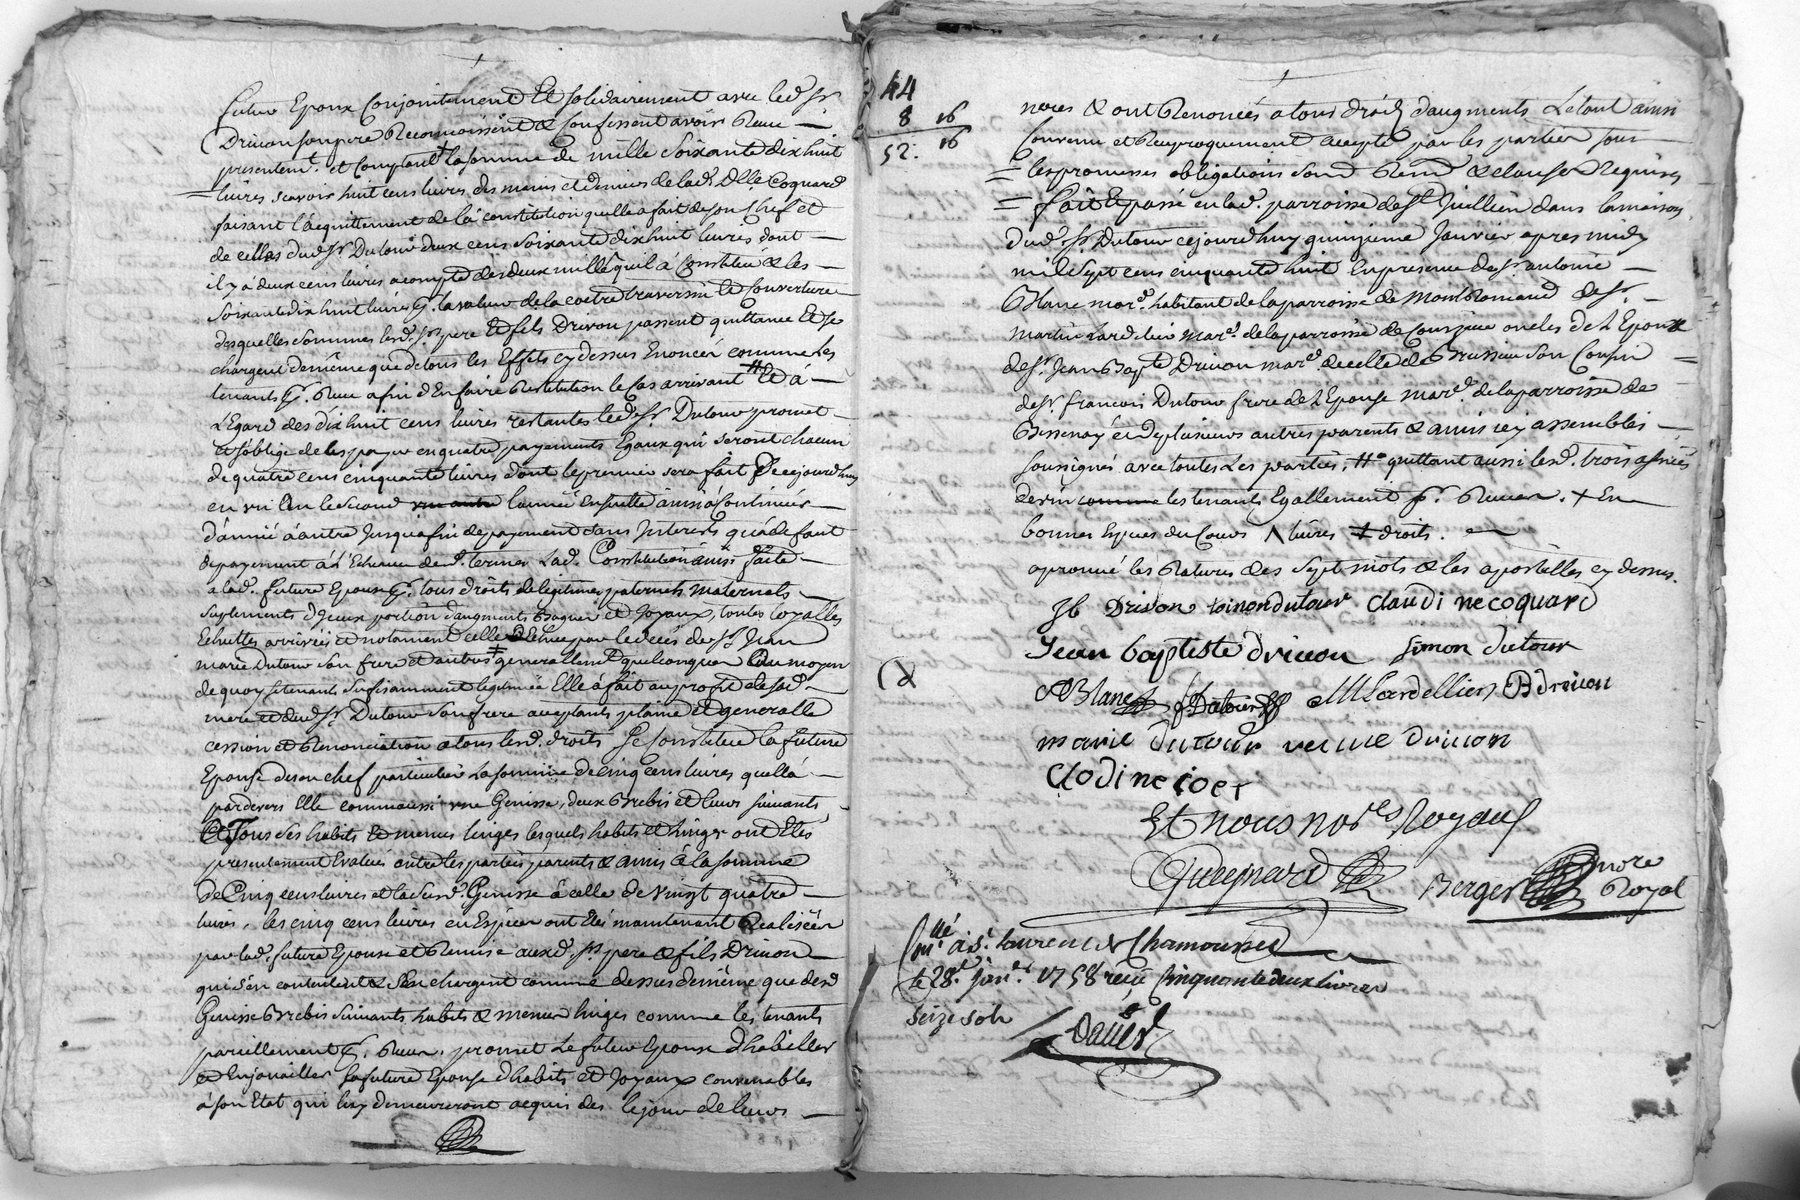 futur Epoux Conjointement Et solidairement avec led. Sr.
Drivon son pere Reconnoissent & Confessent avoir Receu
presentemt. et Comptant la somme de mille soixante dix huit
livres scavoir huit cens livres des mains et deniers de lad. Dlle. Coquard
faisant l'acquittement de la constitution quelle a fait de son Chef et
de celles dud. Sr. Dutour deux cens soixante dix huit livres dont
il y a deux cens livres a compte des deux mille quil a Constitué & les
soixante dix huit livres p. la valeur de la coitre traversin Et Couverture
desquelles sommes lesd. Srs. pere Et fils Drivon passent quittance Et se
chargent de même que de tous les Effets cy dessus Enoncés comme les
tenants p. Receu afin d'En faire Restitution le Cas arrivant # Et à
L'Egard des dix huit cens livres restantes led. Sr. Dutour promet
et s'oblige de les payer en quatre payements Egaux qui seront chacun
de quatre cens cinquante livres dont le premier sera fait de cejourdhuy
en un An le second un autre l'année Ensuitte ainsi a Continuer
d'année à autre Jusqua fin de payement sans Interest qu'a defaut
de payement à L'Echeance desd. termes Lad. Constitution ainsi faite
a lad. future Epouse p. tous droits de legitimes paternels maternels
suplements d'Jceux portion d'augments Bagues et Joyaux, toutes loyalles
Echuttes arrivées et notament celle Echue par le deces de Sr. Jean
marie Dutour son frere et autres ‡ generallemt. quelconques Au moyen
de quoy se tenants sufisamment legitimée Elle a fait au profit de sad.
mere et dud. Sr. Dutour son frere aceptants plaine et generalle
cession et Renonciation a tous lesd. droits Se Constitue la future
Epouse de son chef particulier La somme de Cinq cens livres quella
pardevers Elle comme aussi une Genisse, deux Brebis et leurs suivants
Et Tous ses habits & menus linges lesquels habits et linges ont Etés
presentement Evalués entre les parties parents & amis à la somme
de Cinq cens livres et la susd. Genisse à celle de vingt quatre
livres, les cinq cens livres en Espèces ont Eté maintenant Realisées
par lad. future Epouse et Remise auxd. Srs. pere & fils Drivon
qui s'en contentent & s'en chargent comme dessus de même que desd.
Genisse Brebis suivants habits & menus linges comme les tenants
pareillement p. Receu, promet Le futur Epoux d'habiller
et Enjoailler sa future Epouse d'habits et Joyaux convenables
à son Etat qui luy demeureront acquis des le jour de leurs
44
8 16
52. 16
noces & ont Renoncés a tous droits d'augments, Le tout ainsi
Convenu et Reciproquement accepté par les parties sous
les promesses obligations soumd. Rend. & clauses Requises
fait Et passé en lad. parroisse de St. Juillien dans la maison
dud. Sr. Dutour cejourdhuy quinzieme Janvier apres midy
mil sept cens cinquante huit En presence de Sr. antoine
Blanc mard. habitant de la parroisse de Montromand de Sr.
Martin Lardelier Mard. de la parroisse de Courzieu oncles de L'Epoux
de Sr. Jean Bapte Drivon mard. de celle de Brussieu son Cousin
de Sr. francois Dutour frere de L'Epouse mard. de la parroisse de
Bessenay et de plusieurs autres parents & amis icy assemblés
soussignés avec toutes Les parties, # quittant aussi lesd. trois asnées
de vin comme les tenants Egallement p. Receu. + En
bonnes Especes du Cours Λ livres ‡ droits.
aprouvé les Ratures des sept mots & les apostilles cy dessus.
Jb Drivon toinon dutour Claudine coquard
Jean baptiste drivon Simon dutour
(d
ABlanc f. Dutour MLardellier BDrivon
marie dutour veuve drivon
Clodine ioet
Et nous nores Royaux
Guegnard Berger nore
Royal
Cllé
in. à St. Laurent de Chamousset
le 28e. janer. 1758 reçu Cinquante deux livres
seize sols